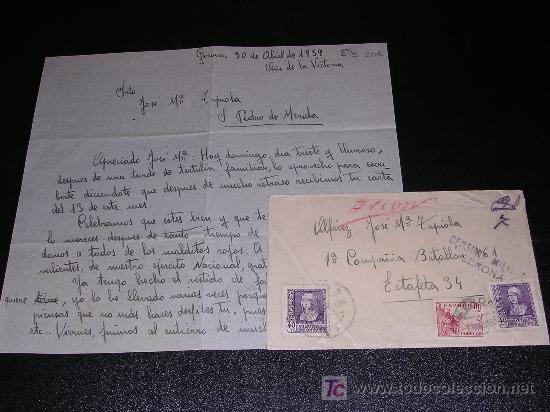 Gerona, 30 de Abril de 1939
Año de la Victoria
Srto
José Mª Tapiola
S. Pedro de Merida
Apreciado José Mª: Hoy domingo, dia triste y lluvioso,
despues de una tarde de tertulia familiar, lo aprovecho para escri-
birte diciendote que despues de mucho retraso recibimos tu carta
del 13 de este mes.
Celebramos que estes bien y que te
lo mereces despues de tanto tiempo de
danos a todos de los malditos rojos. A
valientes, de nuestro ejercito Nacional, grat
Ya tengo hecho el vestido de
quiere, yo lo he llevado varias veces porque
piensas que no mas haces desfiles tu, pues
etc.. Viernes, fuimos al entierro de much
AVION
Alférez José Mª Tapiola
1ª Compañia Batallon
Estafeta 34
CENSURA MILITAR
GERONA
ESPAÑA
CORREOS
TC todocoleccion.net